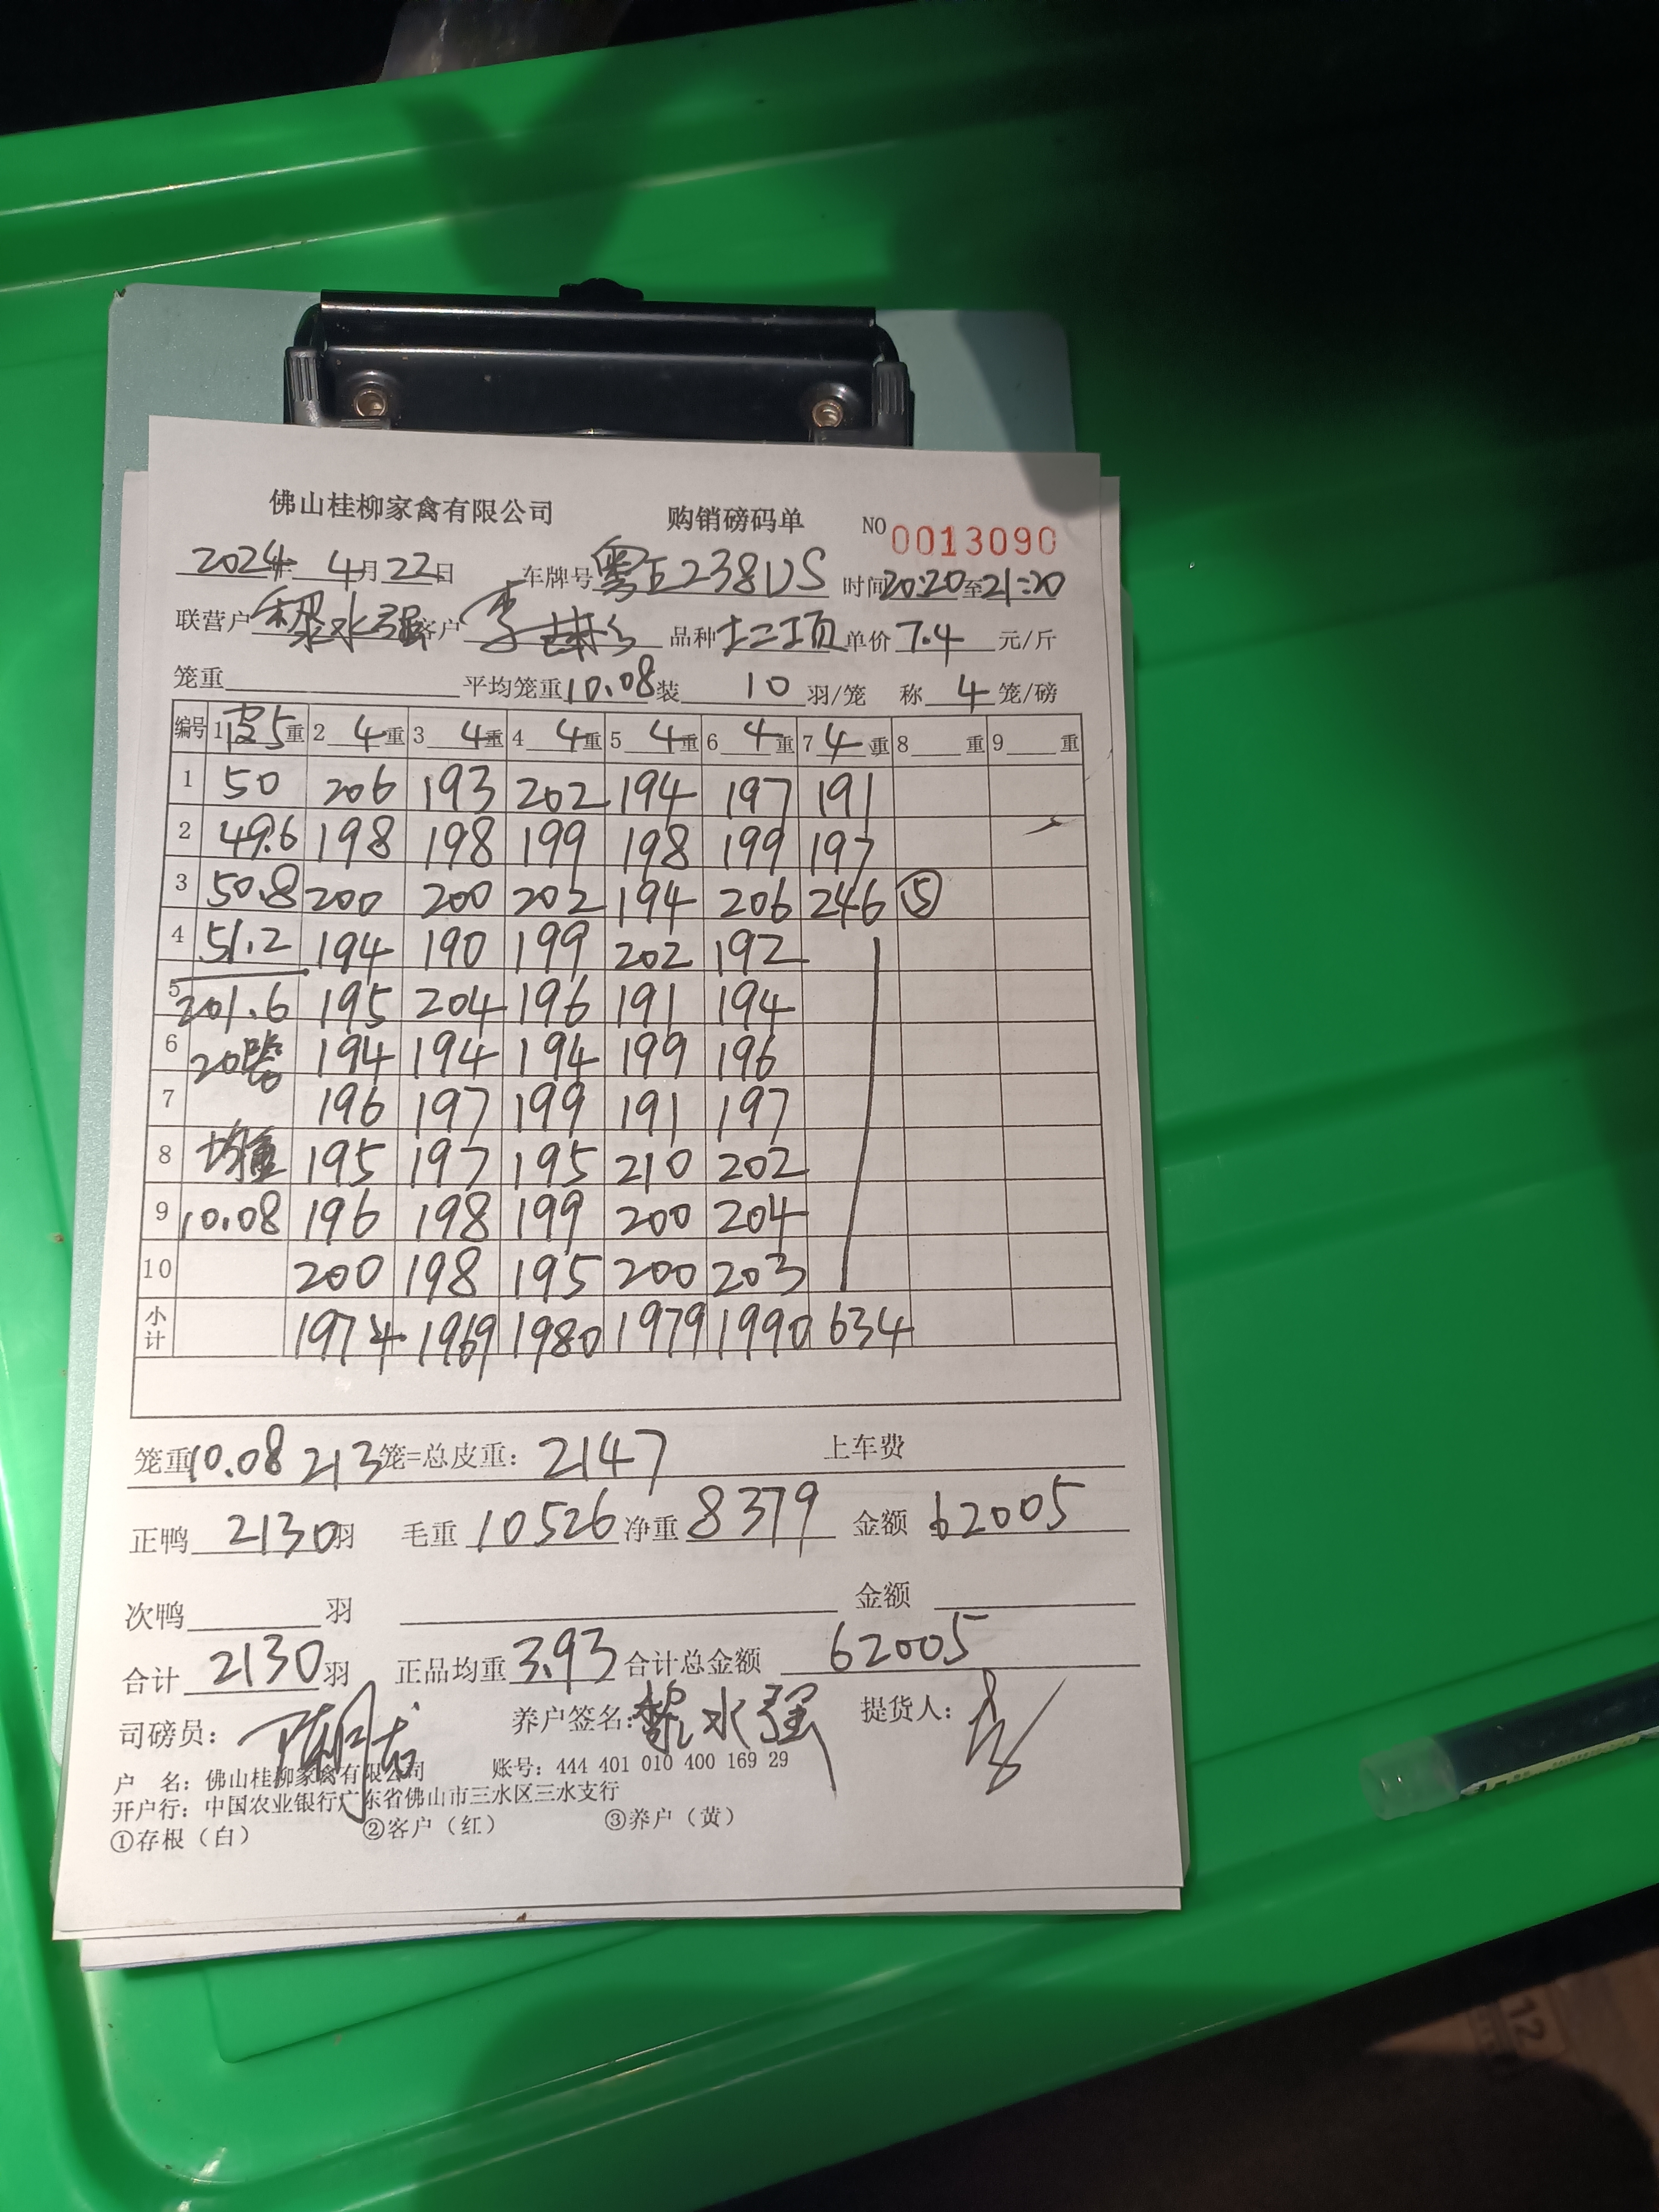 佛山桂柳家禽有限公司 购销磅码单 NO 0013090
2024年 4月22日 车牌号 粤E238DS 时间20:20至21:20
联营户 黎水强 客户 李 品种 土二顶 单价 7.4 元/斤
笼重 平均笼重10.08装 10 羽/笼 称 4 笼/磅
编号 1 皮5重 2 4重 3 4重 4 4重 5 4重 6 4重 7 4重 8 重 9 重
1 50 206 193 202 194 197 191
2 49.6 198 198 199 198 199 197
3 50.8 200 200 202 194 206 246 ⑤
4 51.2 194 190 199 202 192
5 201.6 195 204 196 191 194
6 20 194 194 194 199 196
7 196 197 199 191 197
8 均重 195 197 195 210 202
9 10.08 196 198 199 200 204
10 200 198 195 200 203
小计 1974 1969 1980 1979 1990 634
笼重10.08 213笼=总皮重: 2147 上车费
正鸭 2130羽 毛重 10526 净重 8379 金额 62005
次鸭 羽 金额
合计 2130羽 正品均重 3.93 合计总金额 62005
司磅员: 养户签名: 黎水强 提货人:
户 名: 佛山桂柳家禽有限公司 账号: 444 401 010 400 169 29
开户行: 中国农业银行广东省佛山市三水区三水支行
①存根（白） ②客户（红） ③养户（黄）
12